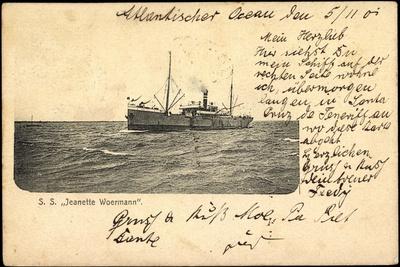 Atlantischer Ocean den 5/11 01
Mein Herzlieb
Hier siehst Du
mein Schiff auf der
rechten Seite wohne
ich, übermorgen
langen in Santa
Cruz de Teneriffa an
wo diese Karte
Herzlichen
Gruss & Kuss
Dein treuer
Fredy
S. S. „Jeanette Woermann".
Gruss & Kuß
Tante